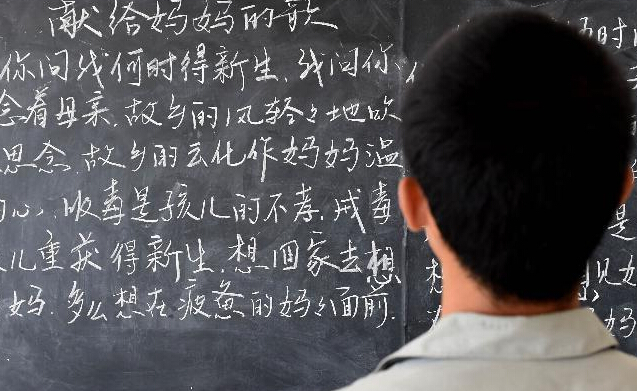 献给妈妈的歌
你问我何时得新生,我问你
念着母亲,故乡的风轻々地吹
思念,故乡的云化作妈妈温
的心,吸毒是孩儿的不孝,戒毒
儿重获得新生,想回家去想
妈,多么想在疲惫的妈々面前.
时
是
想
见
妈